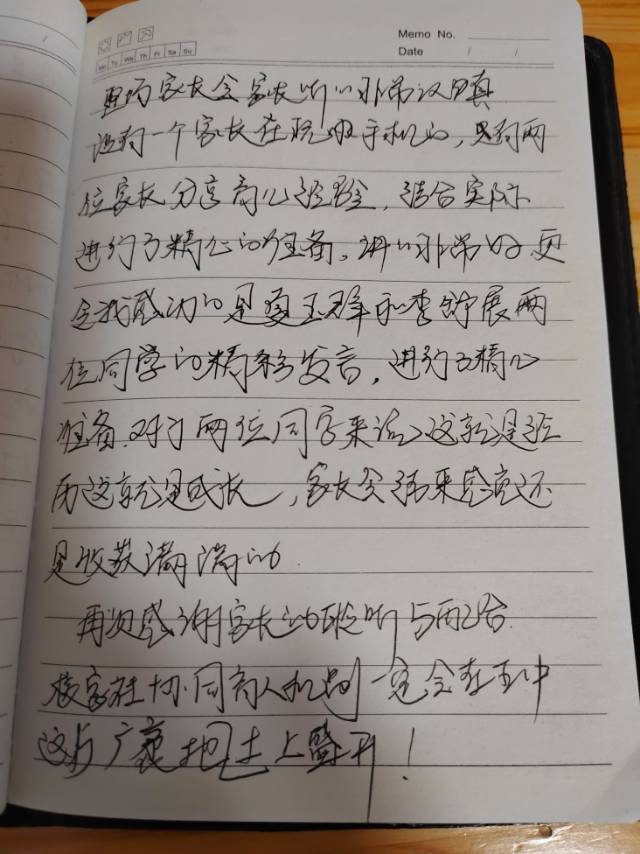 Memo No.
Mo Tu We Th Fr Sa Su
Date / /
家长会家长听的非常认真
没有一个家长在玩手机的，两
位家长分享育儿经验，结合实际
进行了精心的准备，讲的非常好更
令我感动的是夏玉群和李舒展两
位同学的精彩发言，进行了精心
准备，对于两位同学来说这就是经
历这就是成长，家长会结束感觉还
是收获满满的
再次感谢家长的聆听与配合
校家社协同育人机制一定会在玉中
这片广袤地土上盛开！